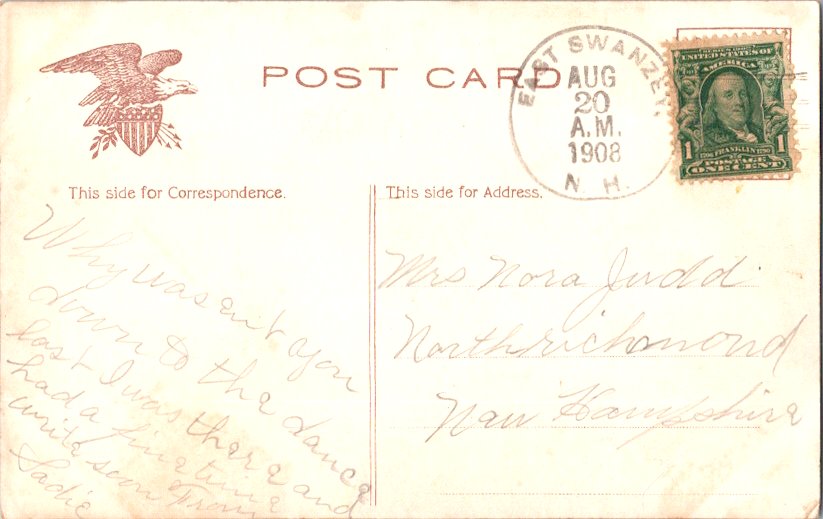 POST CARD
EAST SWANZEY,
AUG
20
A.M.
1908
N. H.
SERIES 1902
UNITED STATES OF
AMERICA
1 1706 FRANKLIN 1790 1
POSTAGE
ONE CENT
This side for Correspondence.
This side for Address.
Why was ent you
down to the dance
last I was there and
had a fine time
write soon From
Sadie
Mrs Nora Judd
North richmond
New Hampshire